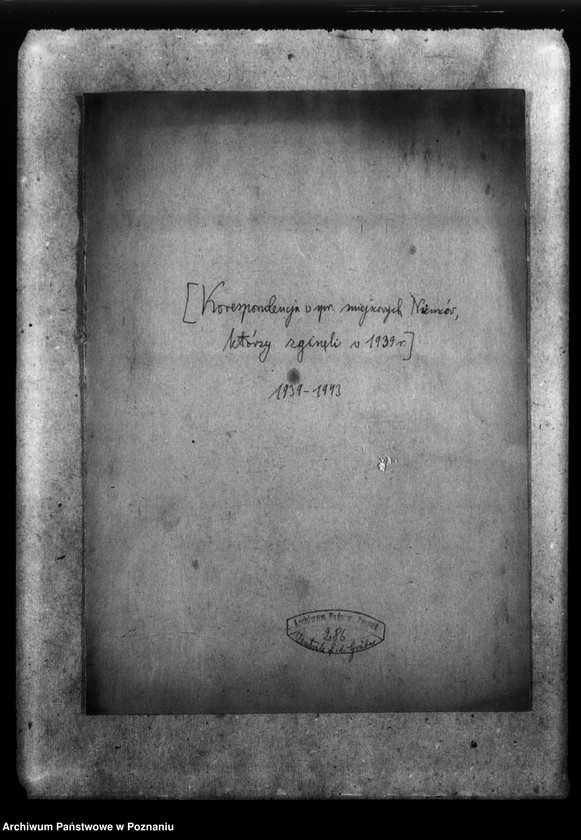 [Korespondencja w spr. miejscowych Niemców,
którzy zginęli w 1939 r.]
1939-1943
Archiwum Państw. Poznań
286
Zentrale f. d. Gräber
Archiwum Państwowe w Poznaniu